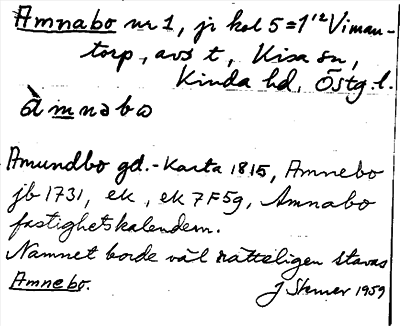 Amnabo nr 1, jr kol 5=1'12 Viman-
torp, avs t, Kisa sn,
Kinda hd, Östg.l.
àmnabo
Amundbo gd.-Karta 1815, Amnebo
jb 1731, ek, ek 7F5g, Amnabo
fastighetskalendern.
Namnet borde väl rätteligen stavas
Amnebo. J Stemer 1959